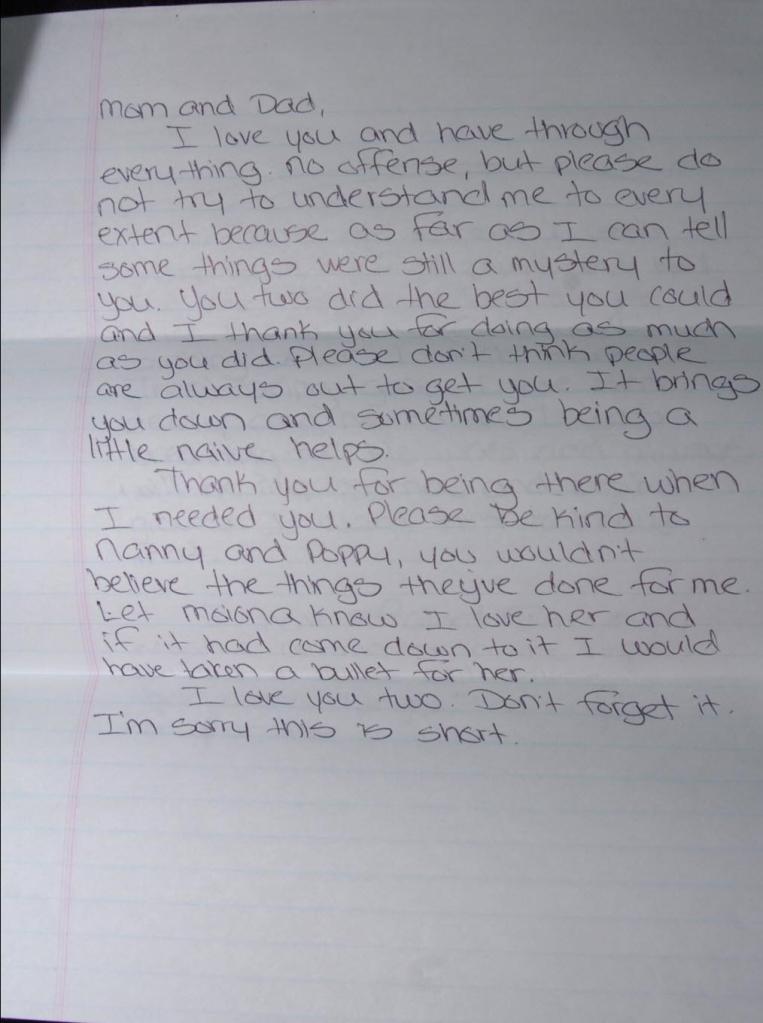 Mom and Dad,
I love you and have through
everything. no offense, but please do
not try to understand me to every
extent because as far as I can tell
some things were still a mystery to
you. You two did the best you could
and I thank you for doing as much
as you did. Please don't think people
are always out to get you. It brings
you down and sometimes being a
little naive helps.
Thank you for being there when
I needed you. Please be kind to
Nanny and Poppy, you wouldn't
believe the things they've done for me.
Let know I love her and
if it had come down to it I would
have taken a bullet for her.
I love you two. Don't forget it.
I'm sorry this is short.